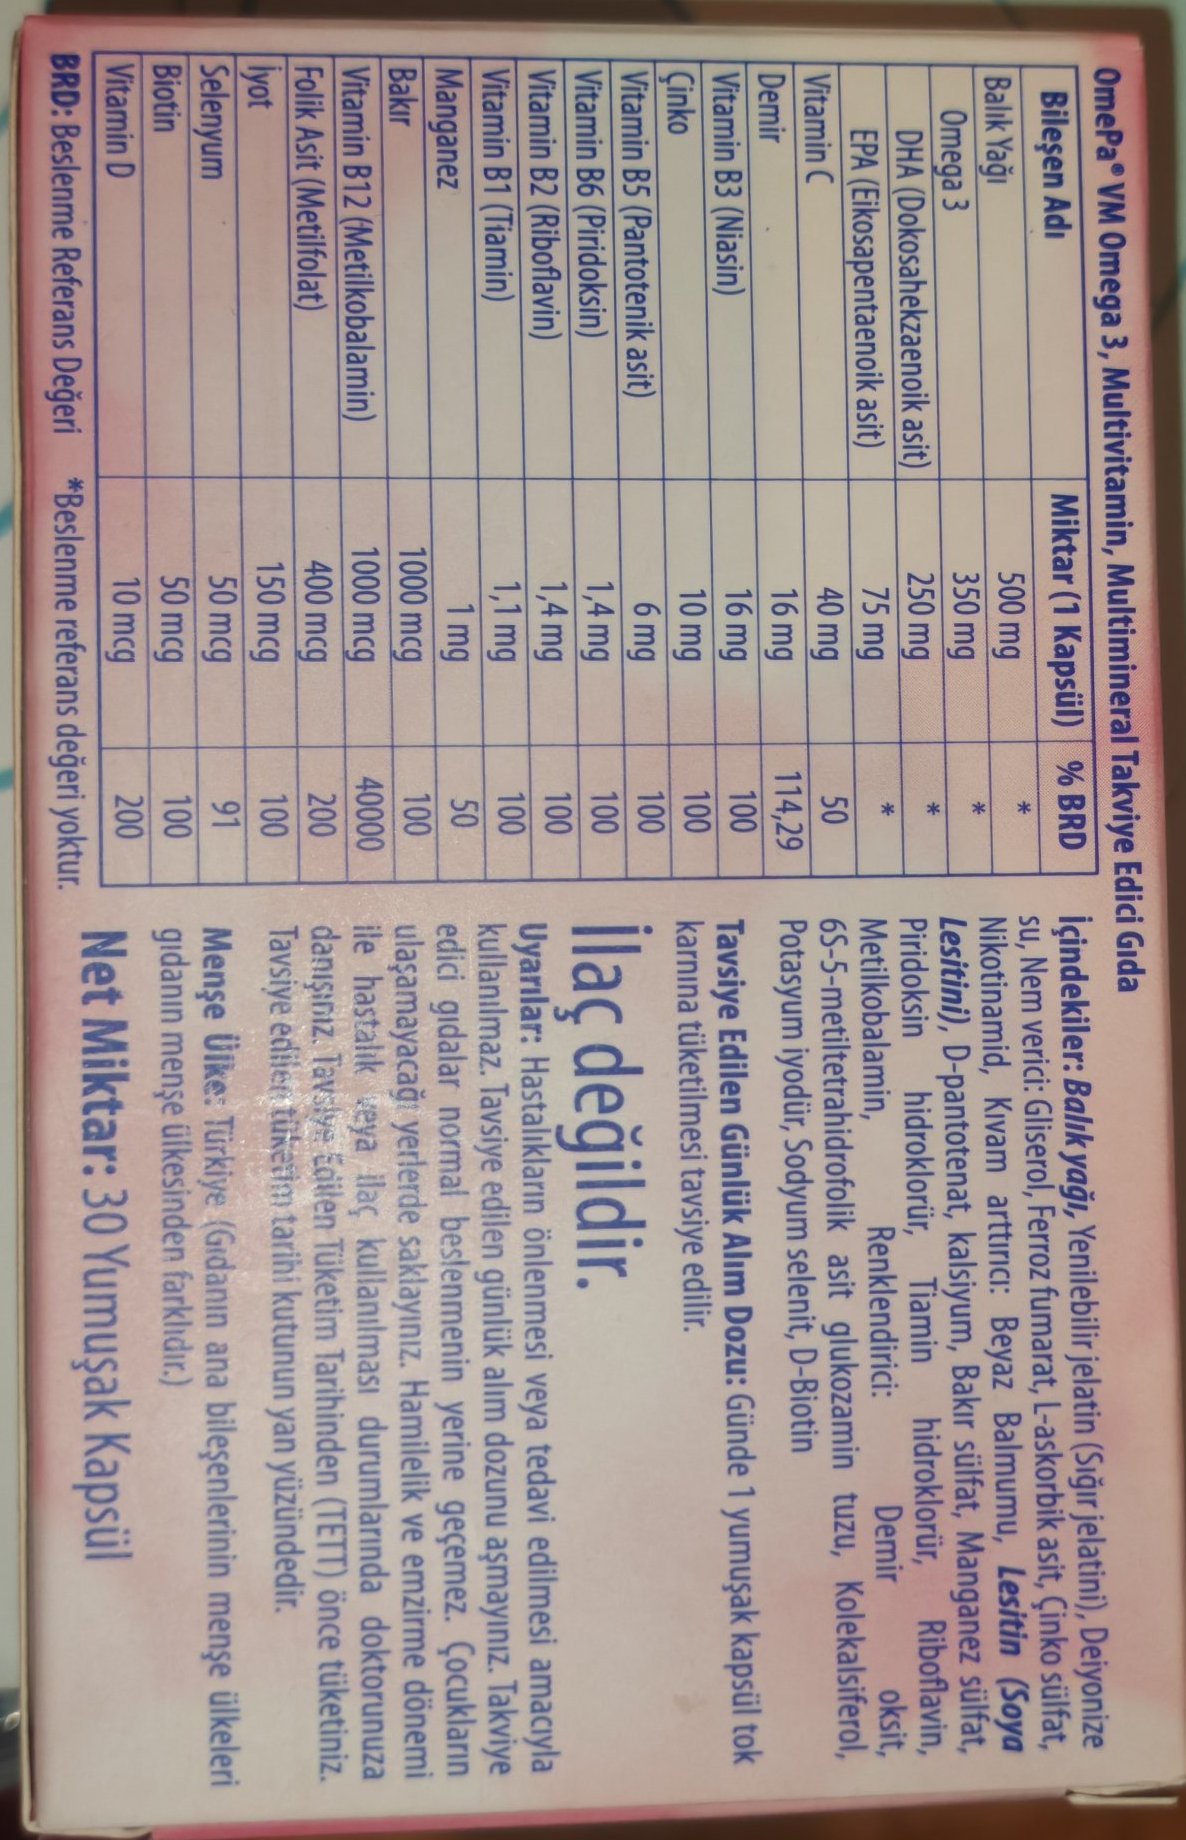 OmePa® VM Omega 3, Multivitamin, Multimineral Takviye Edici Gıda
Bileşen Adı Miktar (1 Kapsül) % BRD
Balık Yağı 500 mg *
Omega 3 350 mg *
DHA (Dokosahekzaenoik asit) 250 mg *
EPA (Eikosapentaenoik asit) 75 mg *
Vitamin C 40 mg 50
Demir 16 mg 114,29
Vitamin B3 (Niasin) 16 mg 100
Çinko 10 mg 100
Vitamin B5 (Pantotenik asit) 6 mg 100
Vitamin B6 (Piridoksin) 1,4 mg 100
Vitamin B2 (Riboflavin) 1,4 mg 100
Vitamin B1 (Tiamin) 1,1 mg 100
Manganez 1 mg 50
Bakır 1000 mcg 100
Vitamin B12 (Metilkobalamin) 1000 mcg 40000
Folik Asit (Metilfolat) 400 mcg 200
İyot 150 mcg 100
Selenyum 50 mcg 91
Biotin 50 mcg 100
Vitamin D 10 mcg 200
BRD: Beslenme Referans Değeri *Beslenme referans değeri yoktur.
İçindekiler: Balık yağı, Yenilebilir jelatin (Sığır jelatini), Deiyonize
su, Nem verici: Gliserol, Ferroz fumarat, L-askorbik asit, Çinko sülfat,
Nikotinamid, Kıvam arttırıcı: Beyaz Balmumu, Lesitin (Soya
Lesitini), D-pantotenat, kalsiyum, Bakır sülfat, Manganez sülfat,
Piridoksin hidroklorür, Tiamin hidroklorür, Riboflavin,
Metilkobalamin, Renklendirici: Demir oksit,
6S-5-metiltetrahidrofolik asit glukozamin tuzu, Kolekalsiferol,
Potasyum iyodür, Sodyum selenit, D-Biotin
Tavsiye Edilen Günlük Alım Dozu: Günde 1 yumuşak kapsül tok
karnına tüketilmesi tavsiye edilir.
İlaç değildir.
Uyarılar: Hastalıkların önlenmesi veya tedavi edilmesi amacıyla
kullanılmaz. Tavsiye edilen günlük alım dozunu aşmayınız. Takviye
edici gıdalar normal beslenmenin yerine geçemez. Çocukların
ulaşamayacağı yerlerde saklayınız. Hamilelik ve emzirme dönemi
ile hastalık veya ilaç kullanılması durumlarında doktorunuza
danışınız. Tavsiye Edilen Tüketim Tarihinden (TETT) önce tüketiniz.
Tavsiye edilen tüketim tarihi kutunun yan yüzündedir.
Menşe Ülke: Türkiye (Gıdanın ana bileşenlerinin menşe ülkeleri
gıdanın menşe ülkesinden farklıdır.)
Net Miktar: 30 Yumuşak Kapsül